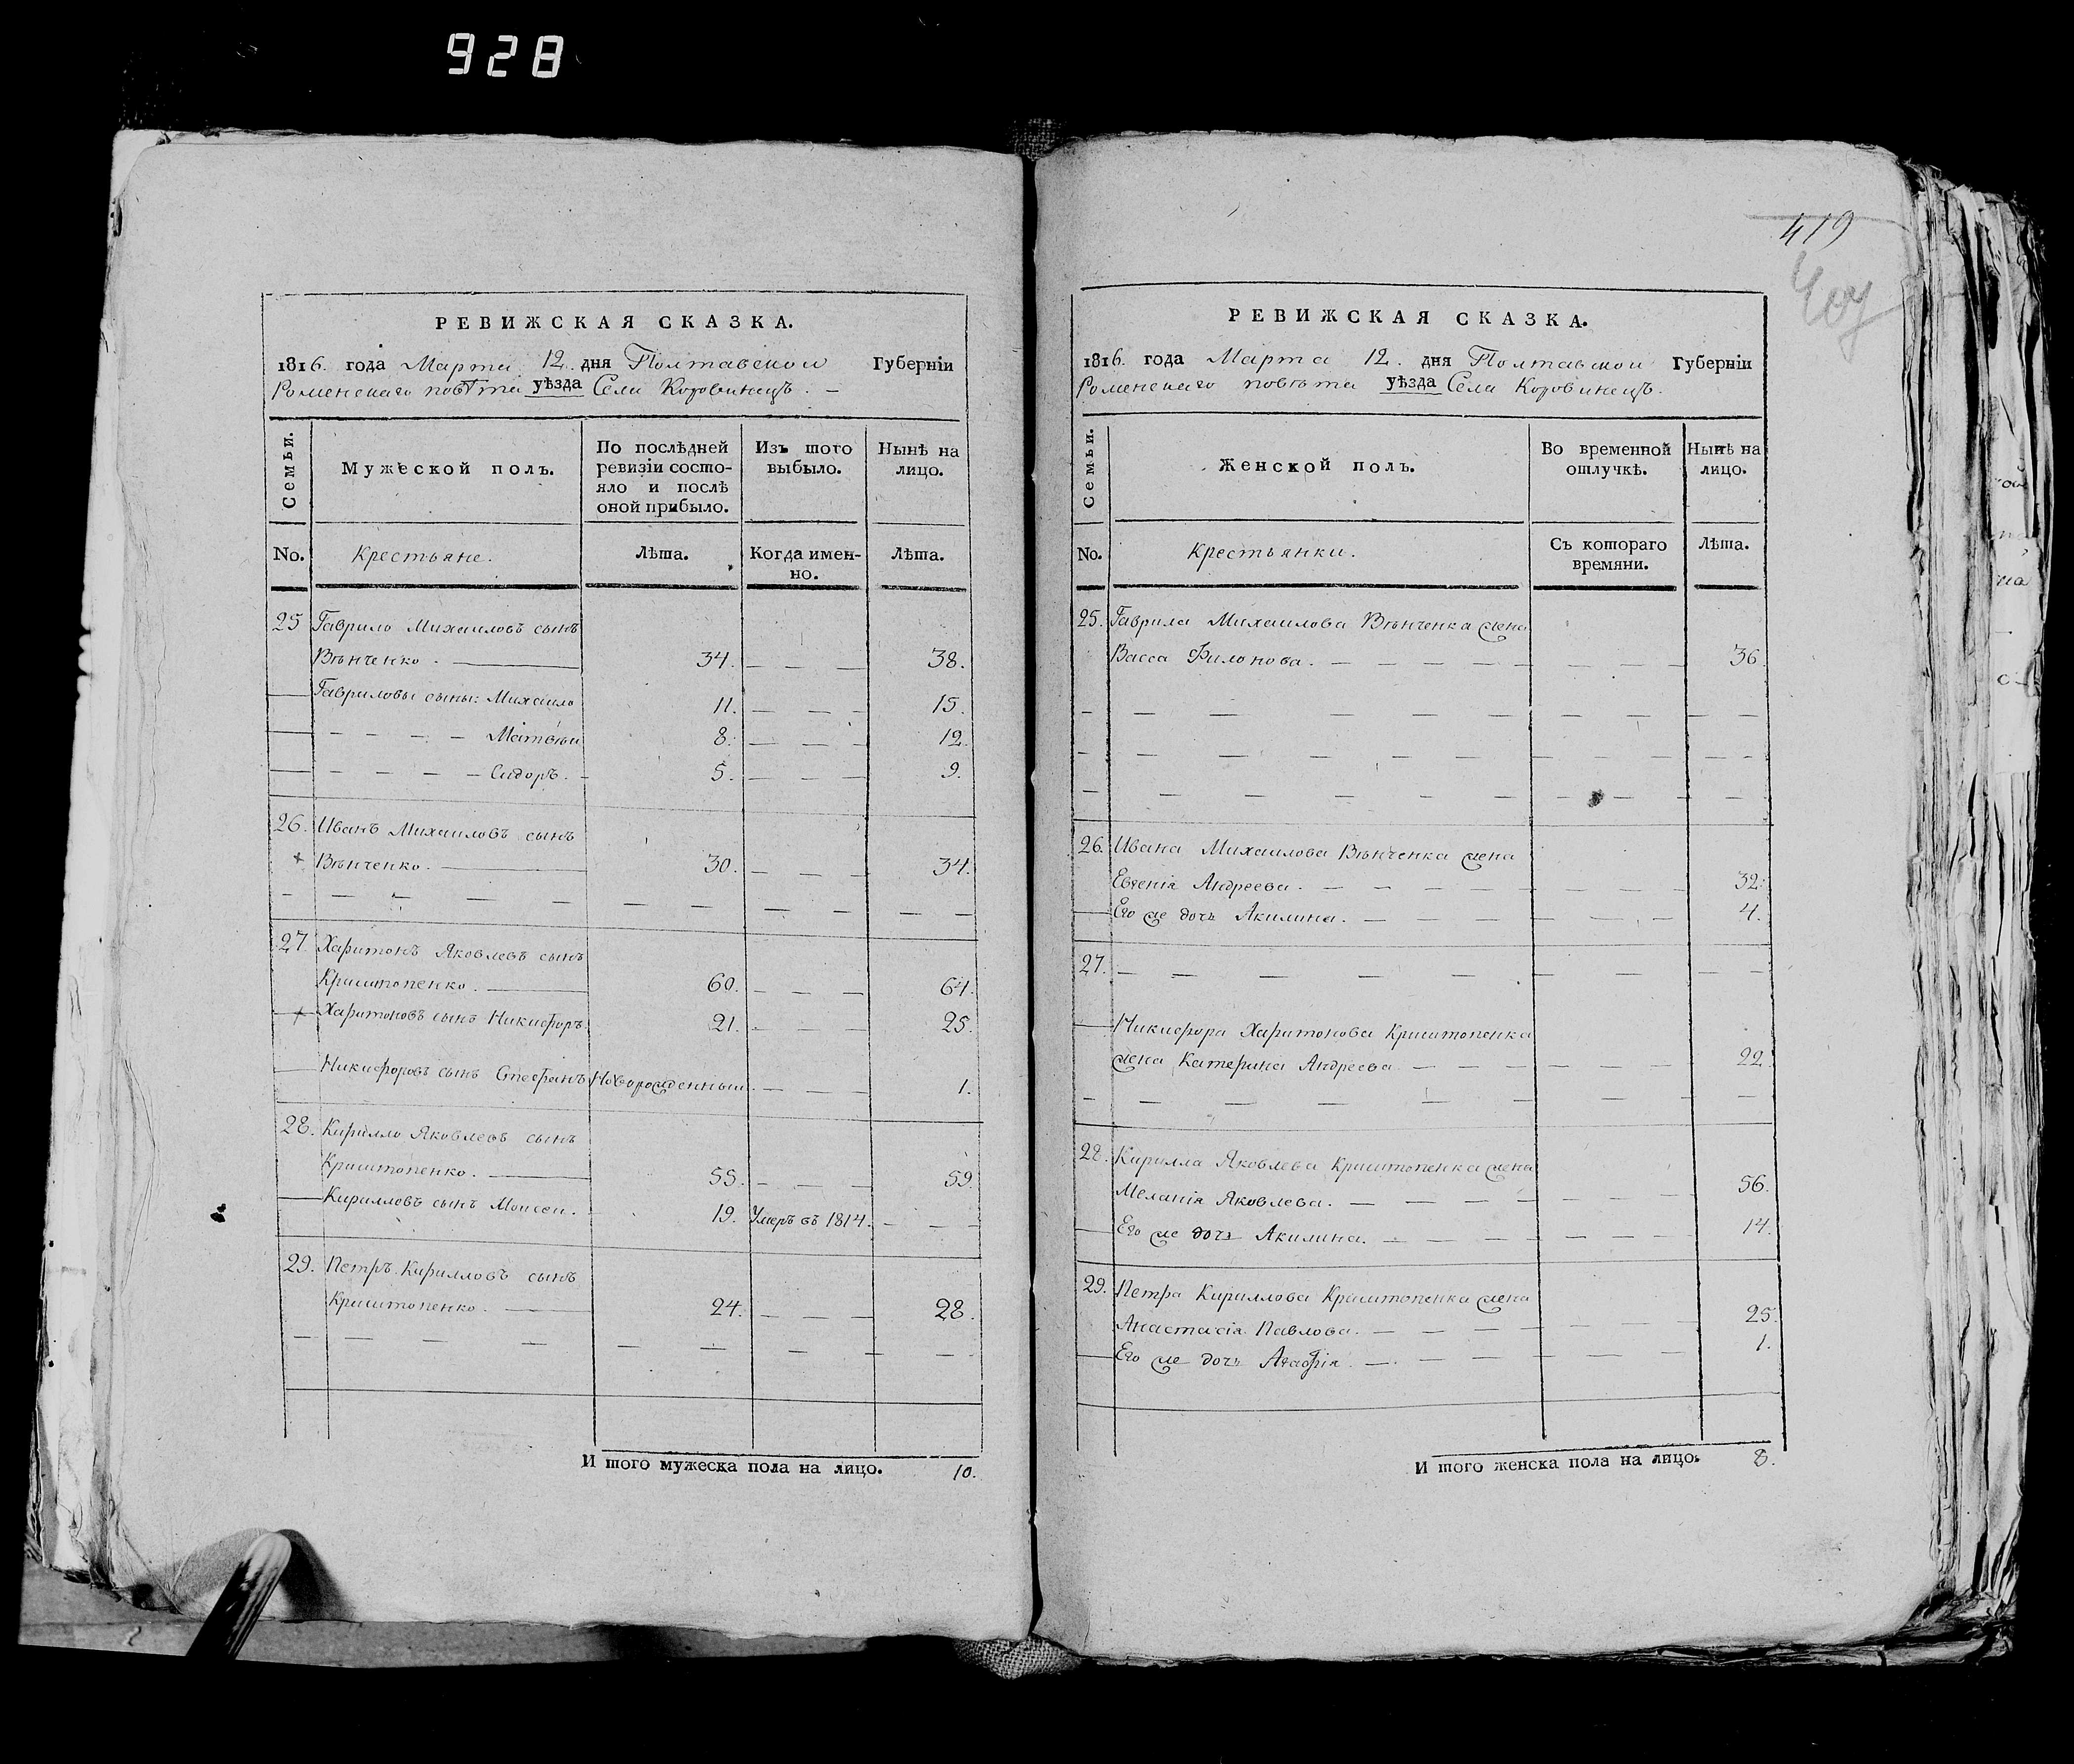 928
РЕВИЖСКАЯ СКАЗКА.
1816. года Марта 12. дня Полтавской Губернїи
Роменскаго повѣта уѣзда Села Коровинецъ. —
Семьи.
Мужеской полъ.
По послѣдней ревизїи состояло и послѣ оной прибыло.
Изъ того выбыло.
Нынѣ на лицо.
No. Крестьяне. Лѣта. Когда именно. Лѣта.
25 Гаврило Михаиловъ сынъ
Вѣнченко. 34. — — — 38.
Гавриловы сыны: Михаило 11. — — — 15.
— — — — Матвѣй 8. — — — 12.
— — — — Сидоръ. 5. — — — 9.
26. Иванъ Михаиловъ сынъ
Вѣнченко. 30. — — — 34.
27. Харитонъ Яковлевъ сынъ
Криштопенко. 60. — — — 64.
Харитоновъ сынъ Никифоръ. 21. — — — 25.
Никифоровъ сынъ Стефанъ Новорожденный. — — — 1.
28. Кирилло Яковлевъ сынъ
Криштопенко. 55. — — — 59.
Кирилловъ сынъ Моисей. 19. Умеръ въ 1814. — — —
29. Петръ Кирилловъ сынъ
Криштопенко. 24. — — — 28.
И того мужеска пола на лицо. 10.
419
РЕВИЖСКАЯ СКАЗКА.
1816. года Марта 12. дня Полтавской Губернїи
Роменскаго повѣта уѣзда Села Коровинецъ.
Семьи.
Женской полъ.
Во временной отлучкѣ.
Нынѣ на лицо.
No. Крестьянки. Съ котораго времяни. Лѣта.
25. Гаврила Михаилова Вѣнченка жена
Васса Филонова. 36.
26. Ивана Михаилова Вѣнченка жена
Евгенія Андреева. 32.
Его же дочь Акилина. 4.
27. — — — — —
Никифора Харитонова Криштопенка
жена Катерина Андреева 22.
28. Кирилла Яковлева Криштопенка жена
Меланія Яковлева. 56.
Его же дочь Акилина. 14.
29. Петра Кириллова Криштопенка жена
Анастасія Павлова. 25.
Его же дочь Агафія. 1.
И того женска пола на лицо. 8.